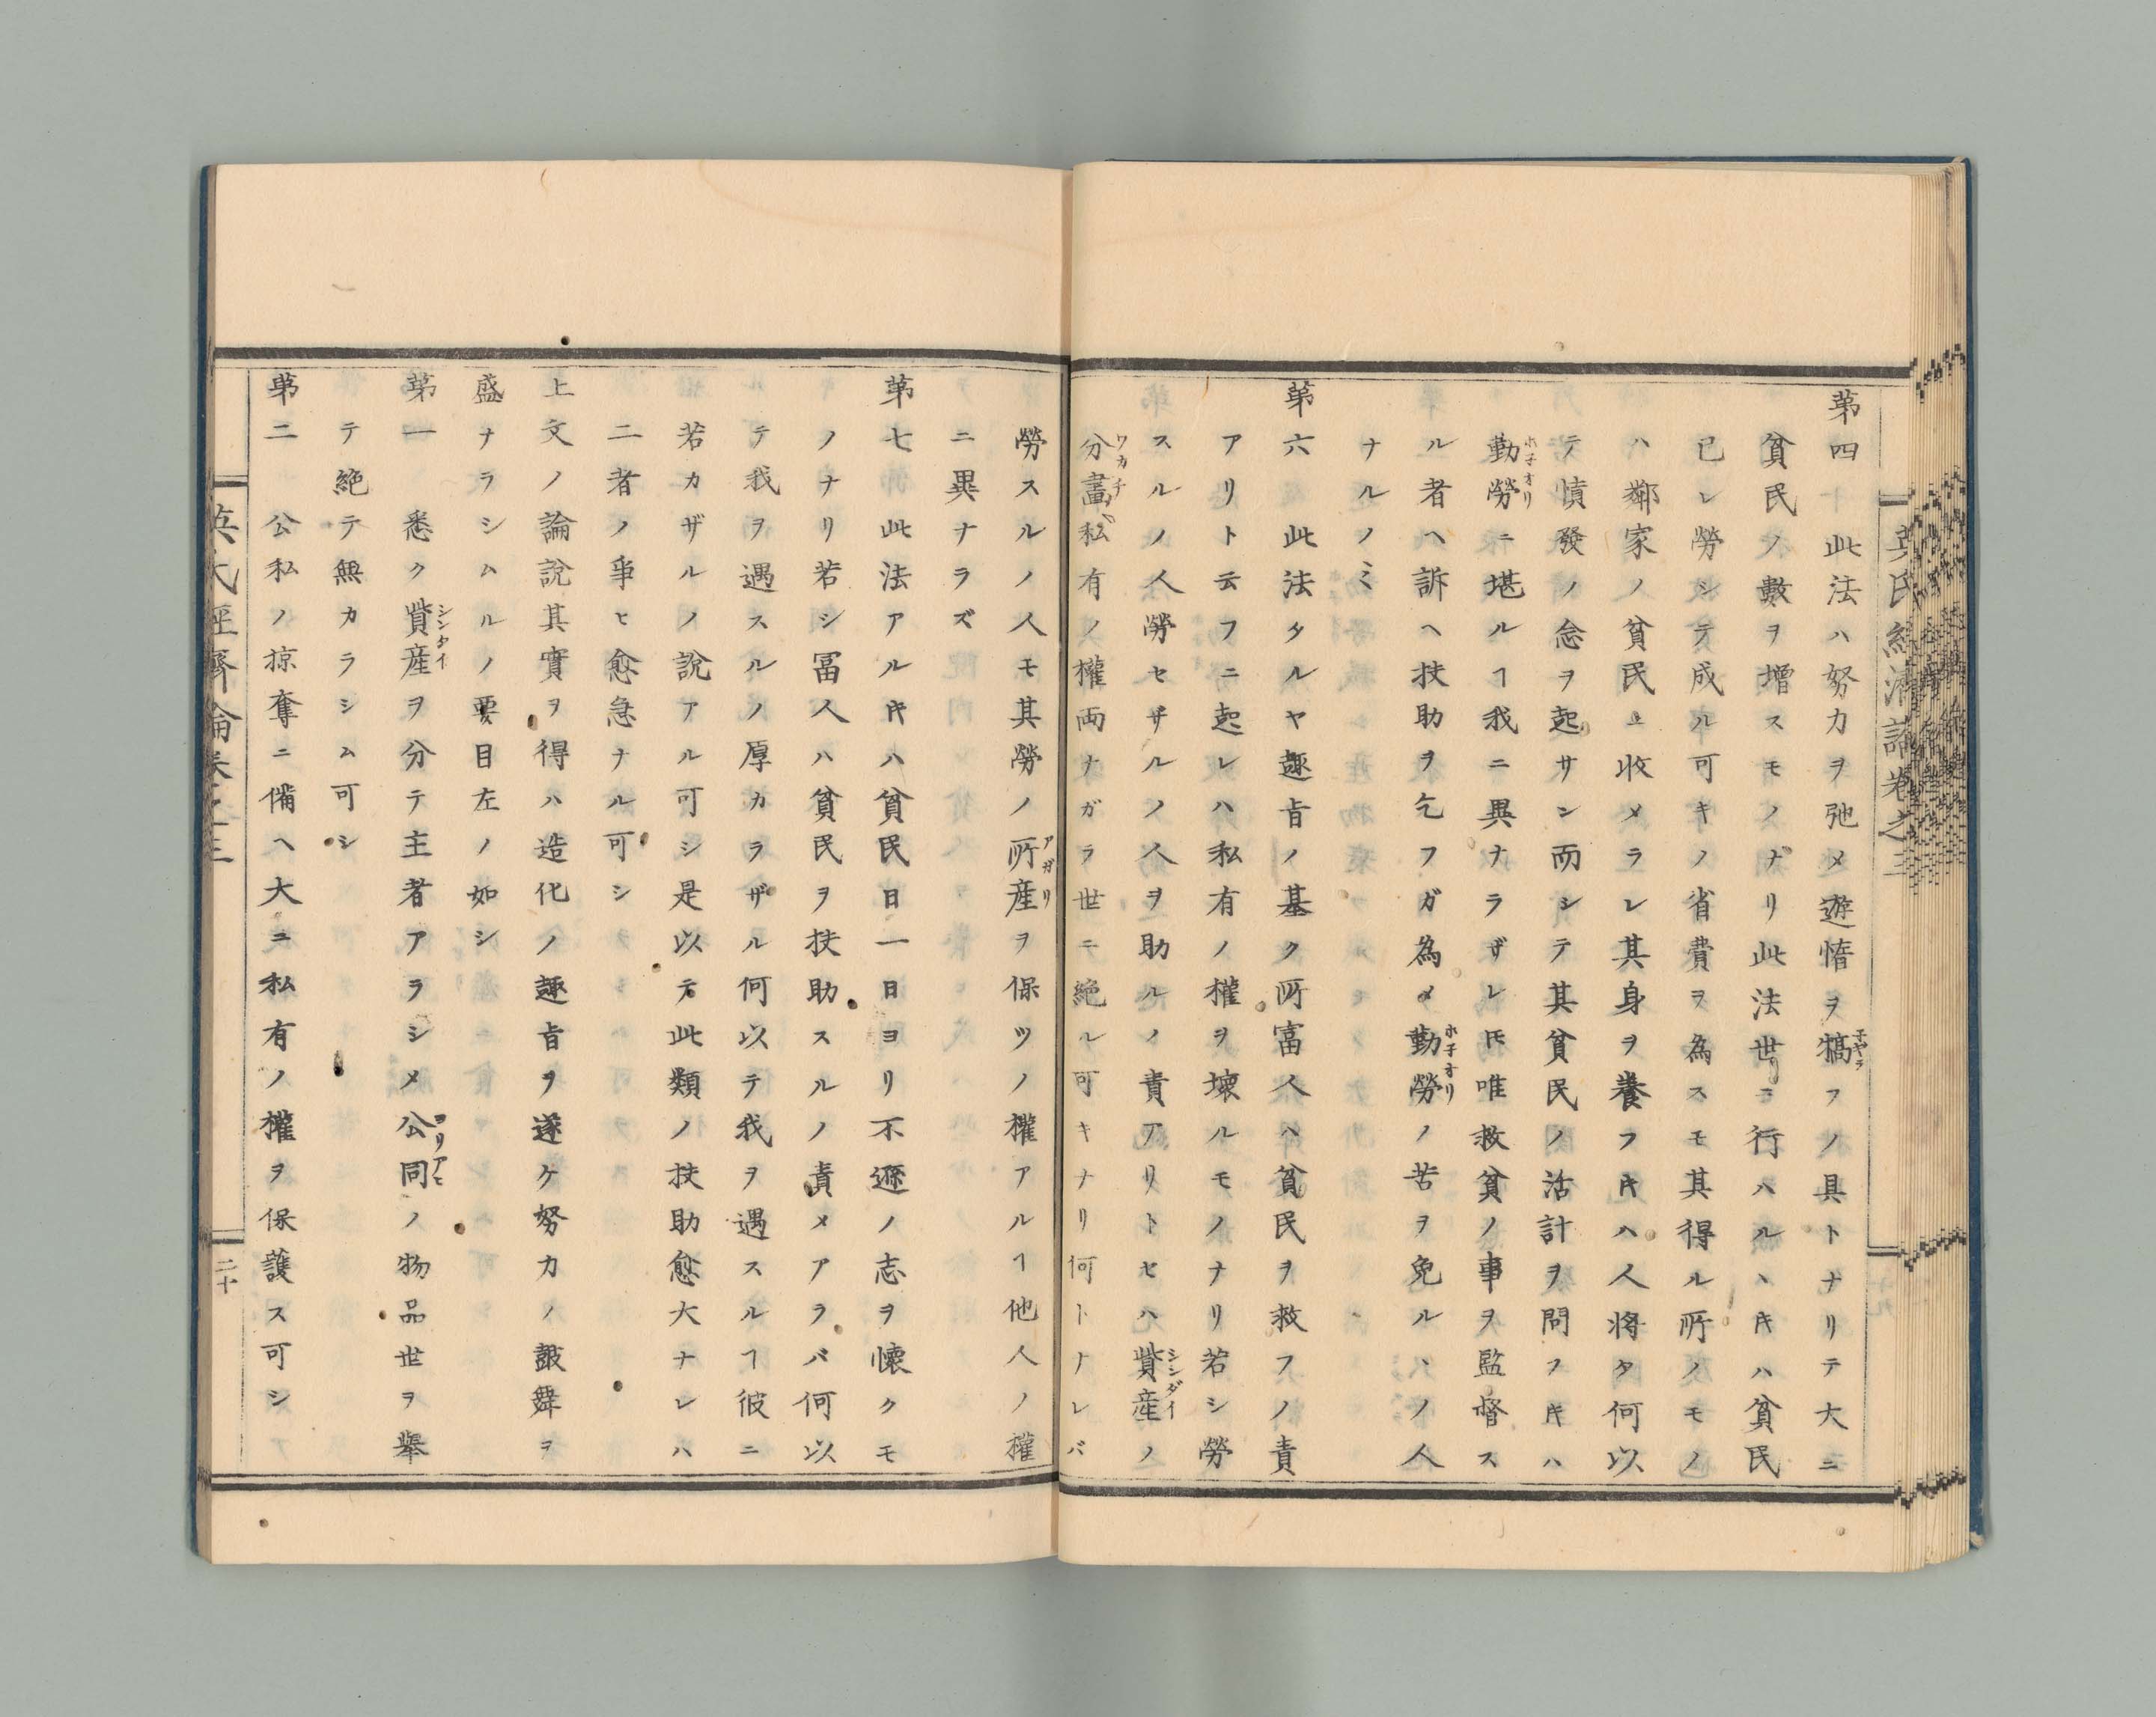 英氏經濟論卷之三
第四 此法ハ努力ヲ弛メ遊惰ヲ犒フノ具トナリテ大ニ
貧民ノ數ヲ增スモノナリ此法世ニ行ハルヽキハ貧民
已レ勞シテ成ル可キノ省費ヲ為スモ其得ル所ノモノ
ハ鄰家ノ貧民ニ收メラレ其身ヲ養フキハ人將タ何以
テ憤發ノ念ヲ起サン而シテ其貧民ノ活計ヲ問フキハ
勤勞ニ堪ルヿ我ニ異ナラザレ𪜈唯救貧ノ事ヲ監督ス
ル者ヘ訴ヘ扶助ヲ乞フガ為メ勤勞ノ苦ヲ免ルヽノ人
ナルノミ
第六 此法タルヤ趣旨ノ基ク所富人ハ貧民ヲ救フノ責
アリト云フニ起レハ私有ノ權ヲ壞ルモノナリ若シ勞
スルノ人勞セザルノ人ヲ助ルノ責アリトセハ貲産ノ
分畫私有ノ權両ナガラ世ニ絶ル可キナリ何トナレバ
勞スルノ人モ其勞ノ所産ヲ保ツノ權アルヿ他人ノ權
ニ異ナラズ
第七 此法アルキハ貧民日一日ヨリ不遜ノ志ヲ懷クモ
ノナリ若シ冨人ハ貧民ヲ扶助スルノ責メアラバ何以
テ我ヲ遇スルノ厚カラザル何以テ我ヲ遇スルヿ彼ニ
若カザルノ說アル可シ是以テ此類ノ扶助愈大ナレハ
二者ノ爭ヒ愈急ナル可シ
上文ノ論說其實ヲ得ハ造化ノ趣旨ヲ遂ケ努力ノ皷舞ヲ
盛ナラシムルノ要目左ノ如シ
第一 悉ク貲産ヲ分テ主者アラシメ公同ノ物品世ヲ擧
テ絶テ無カラシム可シ
第二 公私ノ掠奪ニ備ヘ大ニ私有ノ權ヲ保護ス可シ
英氏經濟論卷之三
二十